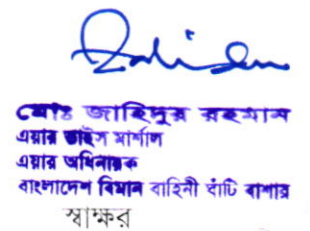 মোঃ জাহিদুর রহমান
এয়ার ভাইস মার্শাল
এয়ার অধিনায়ক
বাংলাদেশ বিমান বাহিনী ঘাঁটি বাশার
স্বাক্ষর